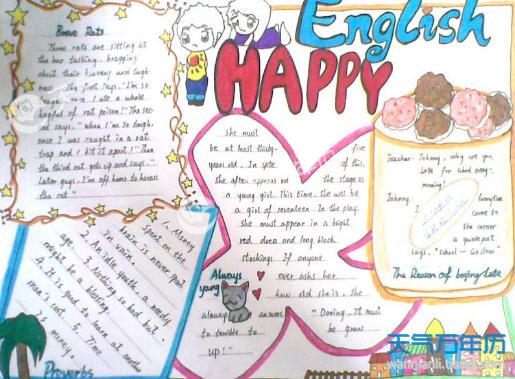 English
HAPPY
Brave Rats
Three rats are sitting at
the bar talking bragging
about their bravery and tough-
ness. The first says, "I'm so
tough, once I ate a whole
bagful of rat poison!" The sec-
ond says, "When I'm so tough,
once I was caught in a rat
trap and I bit it apart!" Then
the third rat gets up and says, "
Later guys, I'm off home to harass
the cat."
She must
be at least thirty-five
years old. In spite of this,
She often appears on the stage as
a young girl. This time, she will be
a girl of seventeen In the play.
She must appear in a bright
red dress and long black
stockings. If anyone
Always
yang
ever asks her
how old she is, she
always answers "Darling, It must
be terrible to grow
up!"
Teacher: Johnny, Why are you
late for school every
morning?
Johnny
Everytime
I come to
the corner
a guidepost
says, "School — Go Slow
The Reason of being Late
Money
spent on the
brain is never spent
in vain.
age.
2. An idle youth a needy
3. Nothing so bad but
might be a blessing.
4. It is good to learn at another
man's cost. 5. Time
is money.
Proverbs
天气万年历
wannianli.tianqi.com